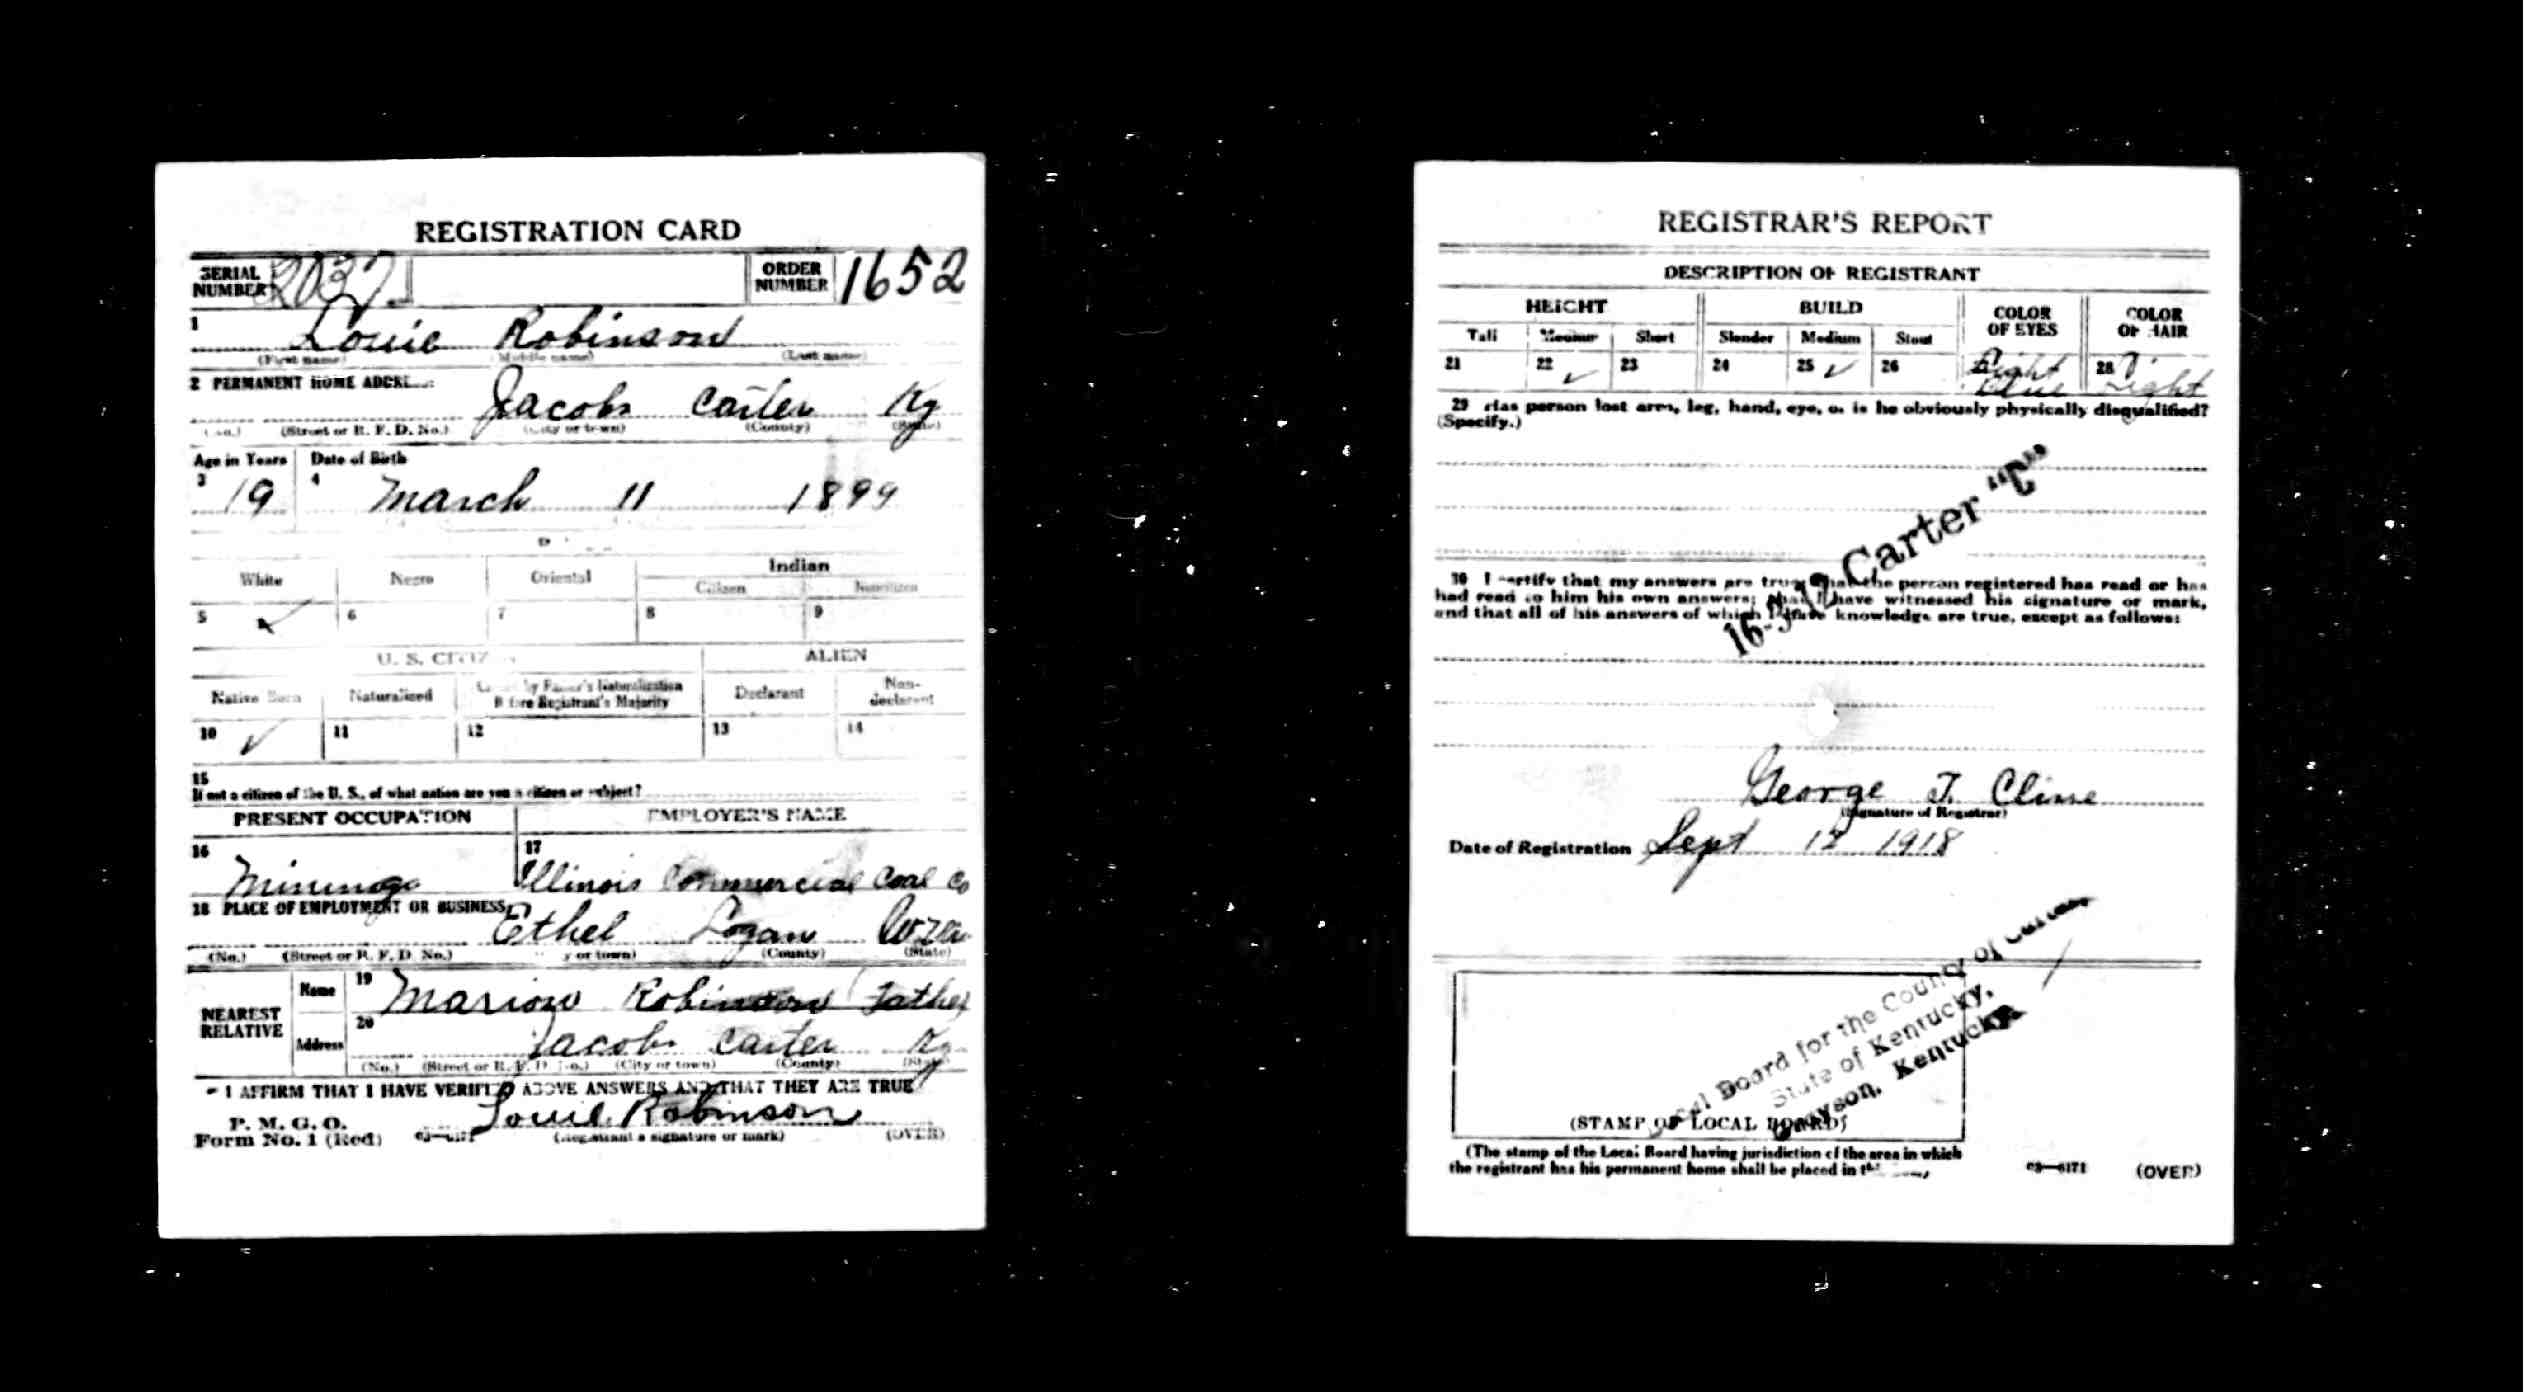 REGISTRATION CARD
SERIAL NUMBER 2037 ORDER NUMBER 1652
1 Louie Robinson
(First name) (Middle name) (Last name)
2 PERMANENT HOME ADDRESS:
Jacobs Carter Ky
(No.) (Street or R. F. D. No.) (City or town) (County) (State)
Age in Years Date of Birth
3 19 4 March 11 1899
Indian
White Negro Oriental Citizen Noncitizen
5 ✓ 6 7 8 9
U. S. CITIZ ALIEN
Native Born Naturalized by Father's Naturalization Before Registrant's Majority Declarant Non-declarant
10 ✓ 11 12 13 14
15
If not a citizen of the U. S., of what nation are you a citizen or subject?
PRESENT OCCUPATION EMPLOYER'S NAME
16 Mining 17 Illinois Commercial Coal Co
18 PLACE OF EMPLOYMENT OR BUSINESS
Ethel Logan
(No.) (Street or R. F. D. No.) (City or town) (County) (State)
NEAREST RELATIVE Name 19 Marion Robinson Father
Address 20 Jacobs Carter Ky
(No.) (Street or R. F. D. No.) (City or town) (County) (State)
I AFFIRM THAT I HAVE VERIFIED ABOVE ANSWERS AND THAT THEY ARE TRUE
P. M. G. O.
Form No. 1 (Red) Louie Robinson
(Registrant's signature or mark) (OVER)
REGISTRAR'S REPORT
DESCRIPTION OF REGISTRANT
HEIGHT BUILD COLOR OF EYES COLOR OF HAIR
Tall Medium Short Slender Medium Stout
21 22 ✓ 23 24 25 ✓ 26 Light Blue 28 Light
29 Has person lost arm, leg, hand, eye, or is he obviously physically disqualified?
(Specify.)
16-9-12 Carter "C"
30 I certify that my answers are true; that the person registered has read or has
had read to him his own answers; that I have witnessed his signature or mark,
and that all of his answers of which I have knowledge are true, except as follows:
George T. Cline
(Signature of Registrar)
Date of Registration Sept 12 1918
Local Board for the County of Carter,
State of Kentucky,
Grayson, Kentucky.
(STAMP OF LOCAL BOARD)
(The stamp of the Local Board having jurisdiction of the area in which
the registrant has his permanent home shall be placed in
03—6171 (OVER)